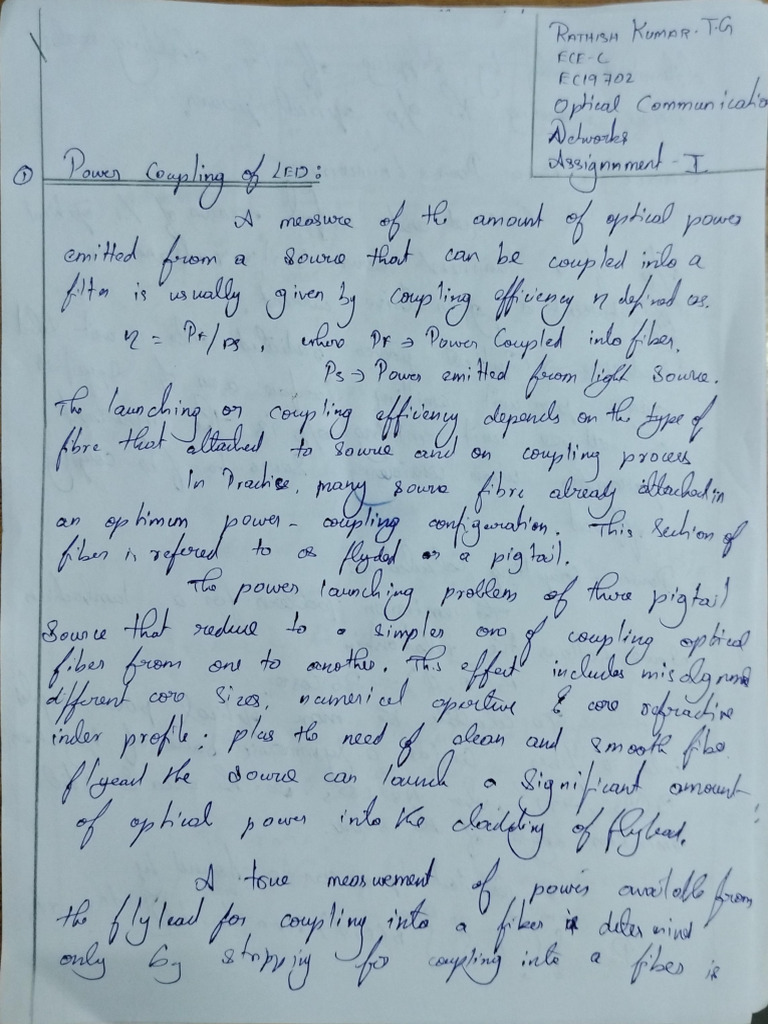 RATHISH KUMAR. T.G
ECE-C
EC19702
Optical Communication
Networks
Assignment - I
① Power Coupling of LED:
A measure of the amount of optical power
emitted from a source that can be coupled into a
filter is usually given by coupling efficiency η defined as.
η = PF/PS, where PF → Power Coupled into fiber.
PS → Power emitted from light source.
The launching or coupling efficiency depends on the type of
fibre that attached to source and on coupling process
In Practise, many source fibre already attached in
an optimum power - coupling configuration. This section of
fiber is refered to as flyded or a pigtail.
The power launching problem of there pigtail
source that reduce to a simpler one of coupling optical
fiber from one to another. This effect includes
different core sizes, numerical aperture & core refractive
index profile; plus the need of clean and smooth fibe
flyead the source can launch a significant amount
of optical power into the cladding of flylead.
A true measurement of power available from
the flylead for coupling into a fiber is
only by stripping for coupling into a fiber is